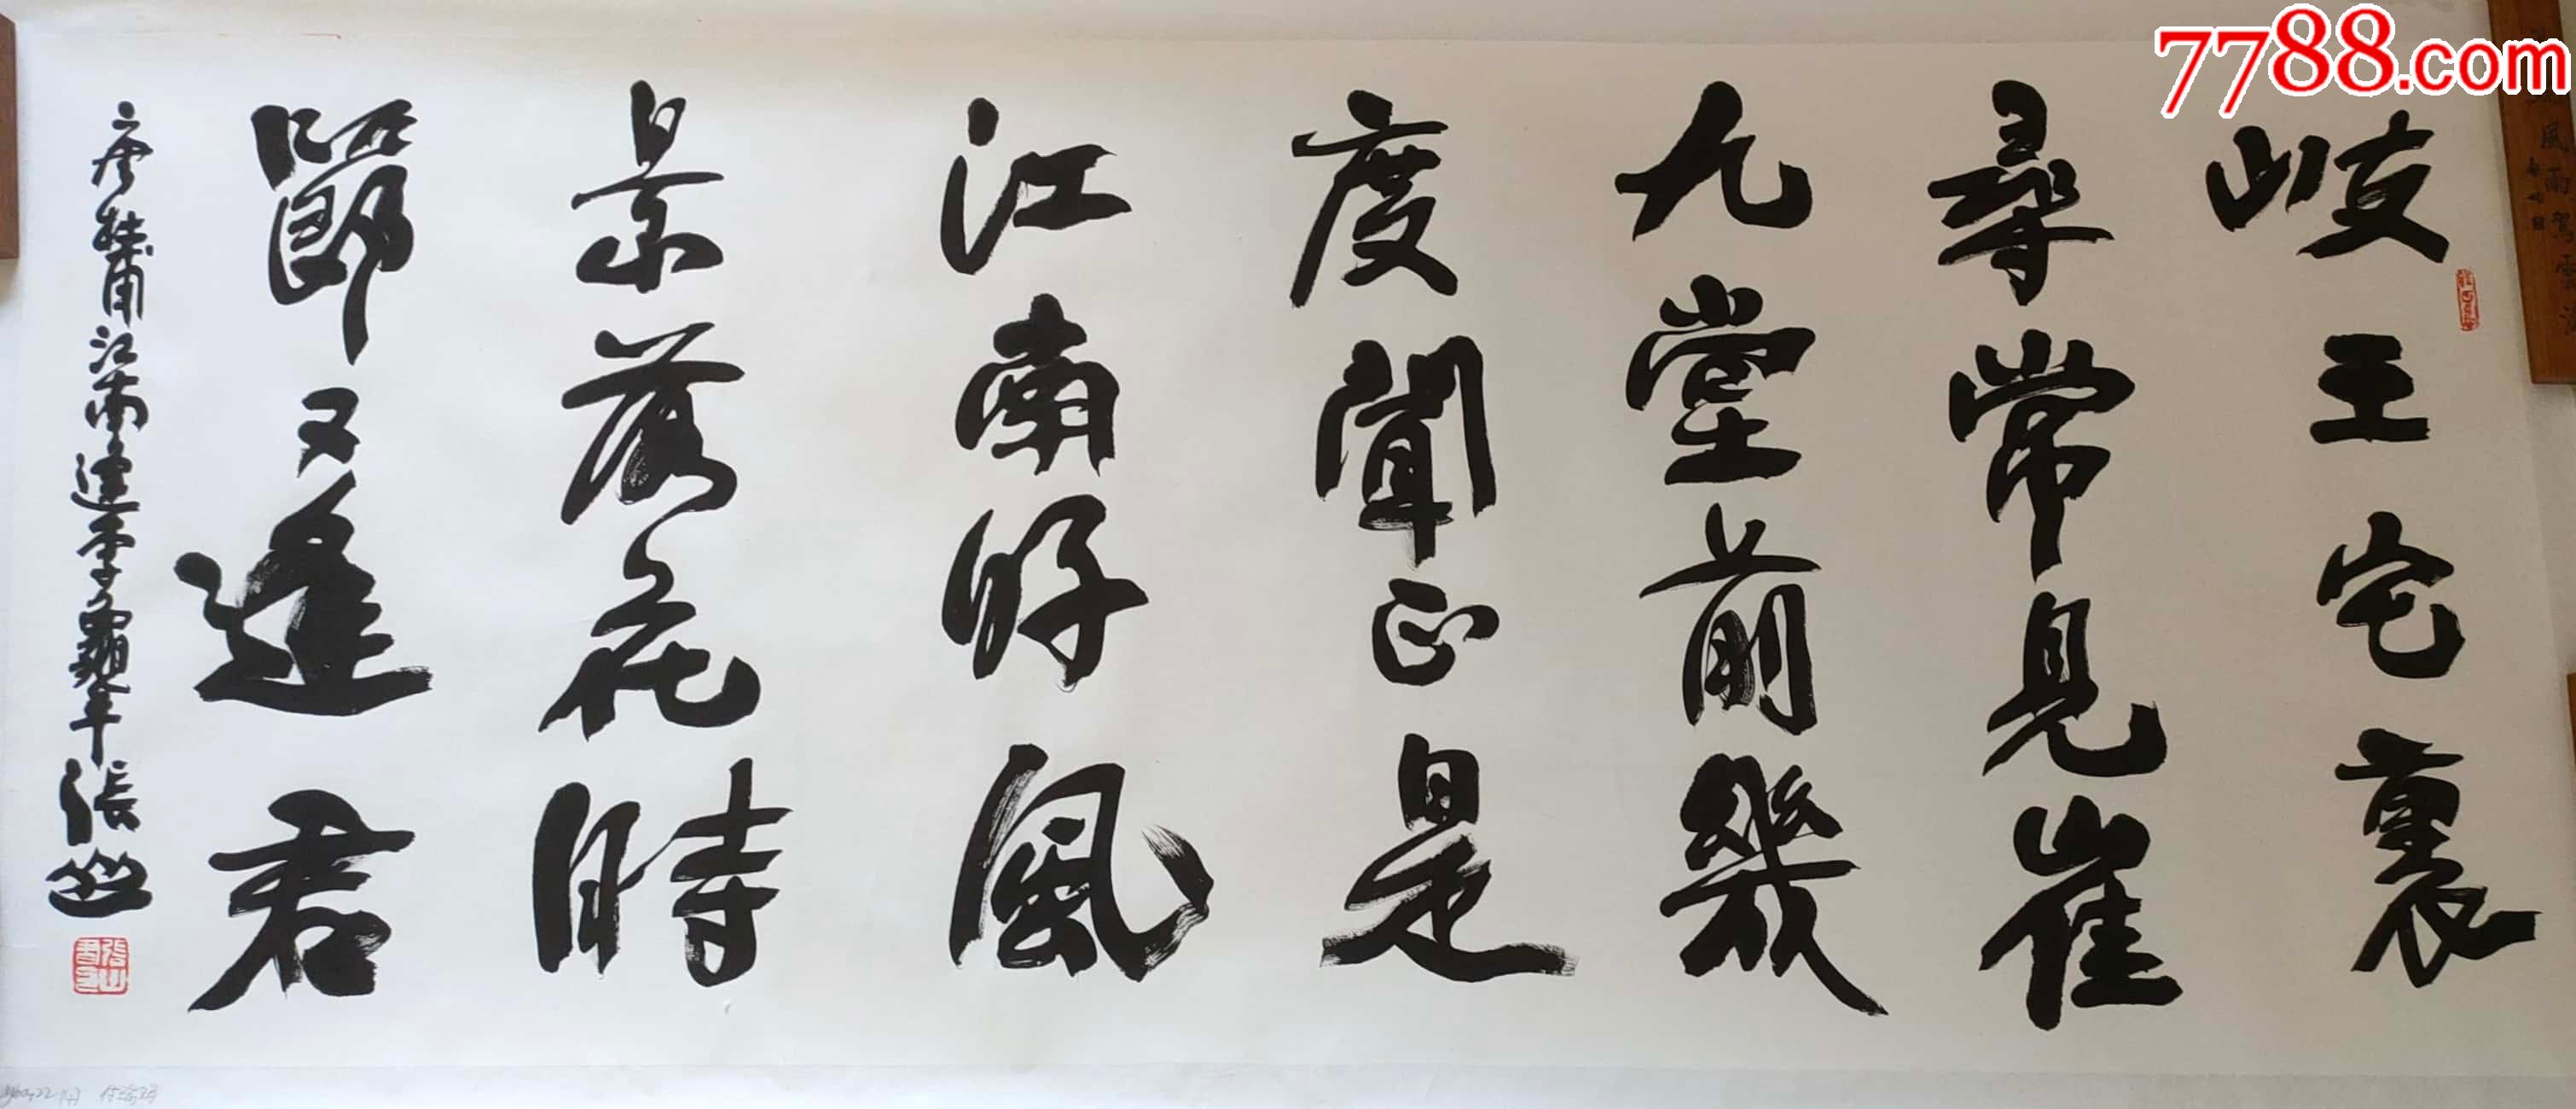 岐王宅裏
尋常見崔
九堂前幾
度聞正是
江南好風
景落花時
節又逢君
唐杜甫江南逢李龜年張
7788.com